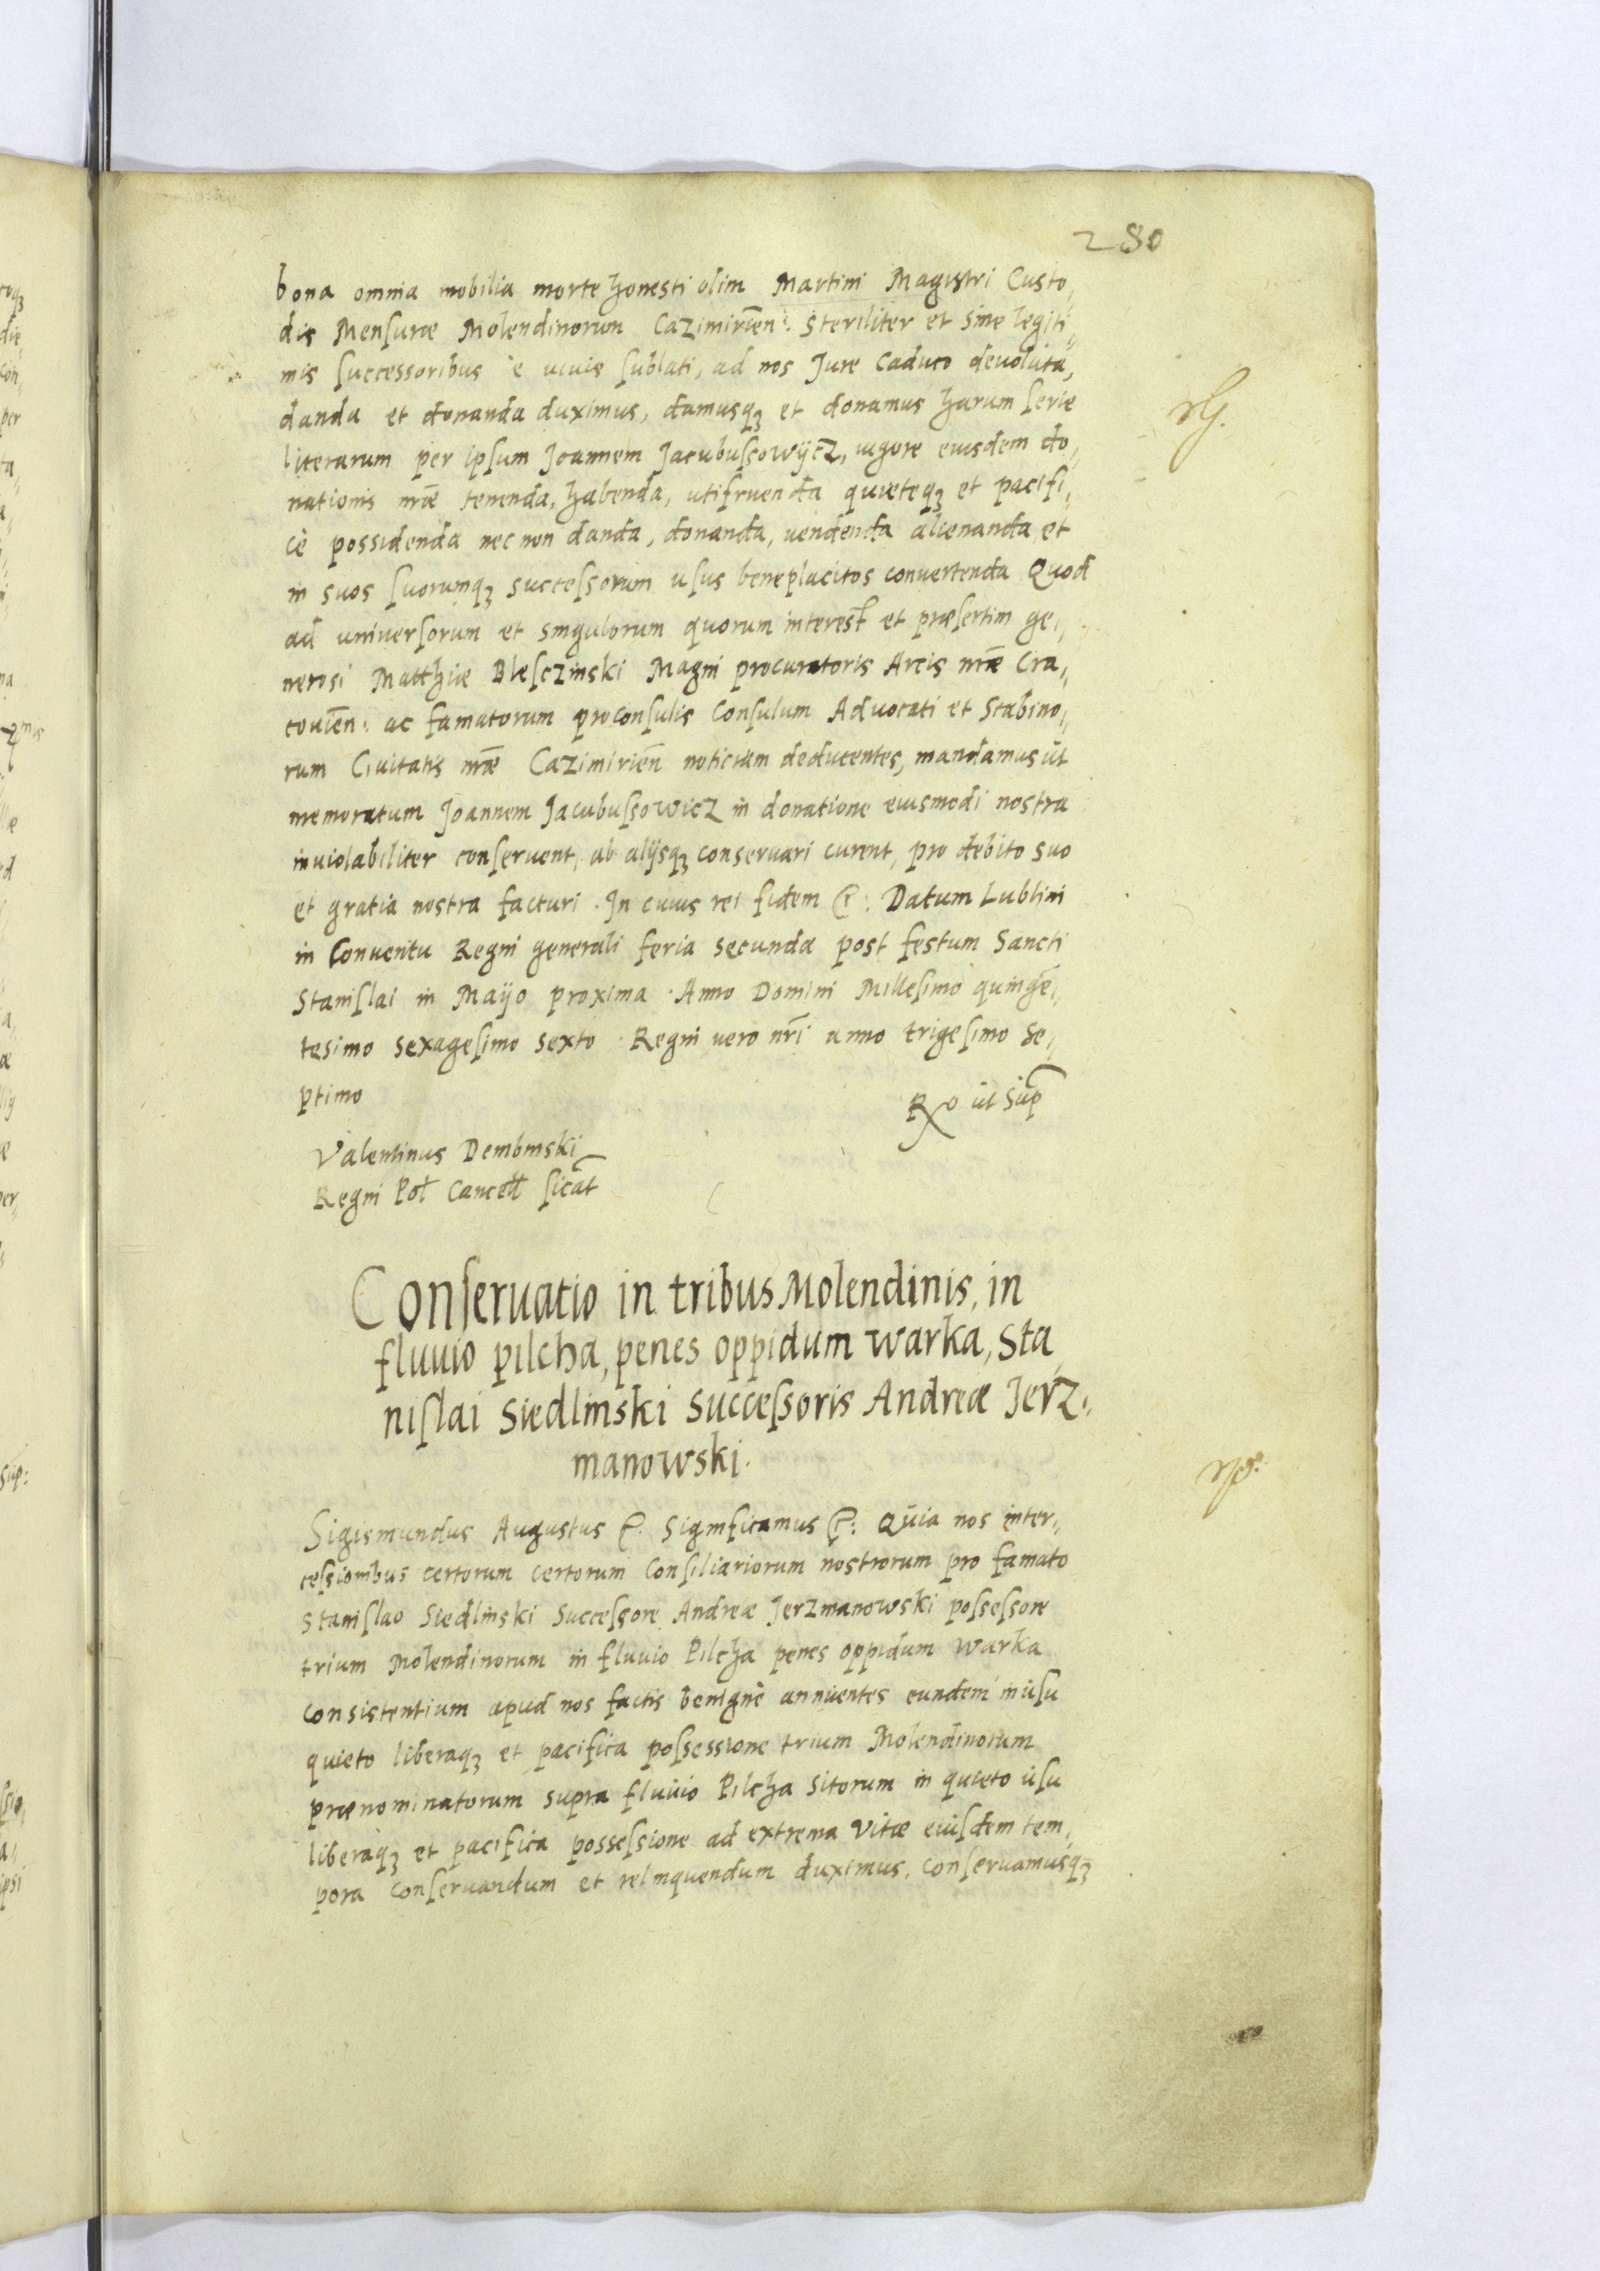 280
bona omnia mobilia morte honesti olim Martini Magistri Custo,
dis Mensuræ Molendinorum Cazimirien̄: steriliter et sine legiti,
mis successoribus è viuis sublati, ad nos Jure caduco deuoluta,
danda et donanda duximus, damusqꝫ et donamus harum serie
literarum per ipsum Joannem Jacubussowijcz, uigore eiusdem do,
nationis nr̄æ tenenda, habenda, utifruenda quieteqꝫ et pacifi,
cè possidenda nec non danda, donanda, uendenda alienanda et
in suos suorumqꝫ successorum usus beneplacitos conuertenda Quod
ad uniuersorum et singulorum quorum interest et præsertim ge,
nerosi Matthiæ Blesczinski Magni procuratoris Arcis nr̄æ Cra,
couien̄: ac famatorum proconsulis Consulum Aduocati et Scabino,
rum Ciuitatis nr̄æ Cazimirien̄ noticiam deducentes, mandamus ut
memoratum Joannem Jacubussowicz in donatione eiusmodi nostra
inuiolabiliter conseruent, ab alijsqꝫ conseruari curent, pro debito suo
et gratia nostra facturi. In cuius rei fidem &: Datum Lublini
in Conuentu Regni generali feria secunda post festum Sancti
Stanislai in Maijo proxima. Anno Domini Millesimo quingē,
tesimo sexagesimo sexto. Regni uero nr̄i anno trigesimo se,
ptimo
Rꝫo ut sup
Valentinus Dembinski
Regni Pol Cancell sicat
Conseruatio in tribus Molendinis, in
fluuio pilcha, penes oppidum warka, Sta,
nislai Siedlinski Successoris Andreæ Jerz,
manowski.
Sigismundus Augustus &. Significamus &: Quia nos inter,
cessionibus certorum certorum Consiliariorum nostrorum pro famato
Stanislao Siedlinski Successore Andreæ Jerzmanowski possessore
trium Molendinorum in fluuio Pilcha penes oppidum Warka
consistentium apud nos factis benignè annuentes eundem in usu
quieto liberaqꝫ et pacifica possessione trium Molendinorum
prænominatorum supra fluuio Pilcha sitorum in quieto usu
liberaqꝫ et pacifica possessione ad extrema vitæ eiusdem tem,
pora conseruandum et relinquendum duximus, conseruamusqꝫ